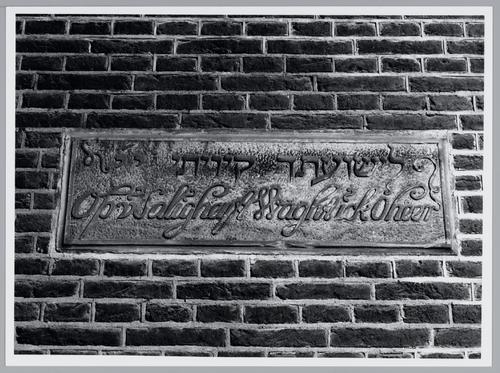 לישועתך קויתי יי
Op u Saligheyt Waght ick o heer